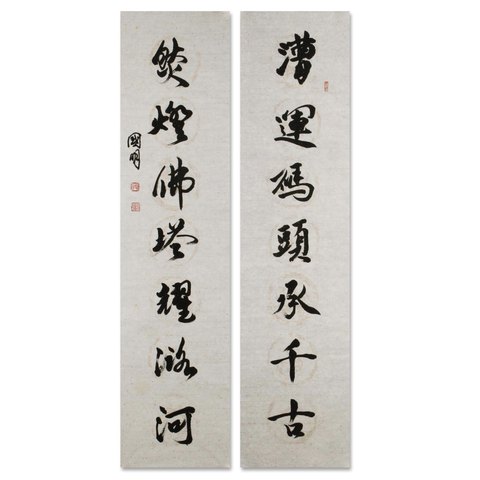 漕運碼頭承千古
燃燈佛塔耀潞河
國明